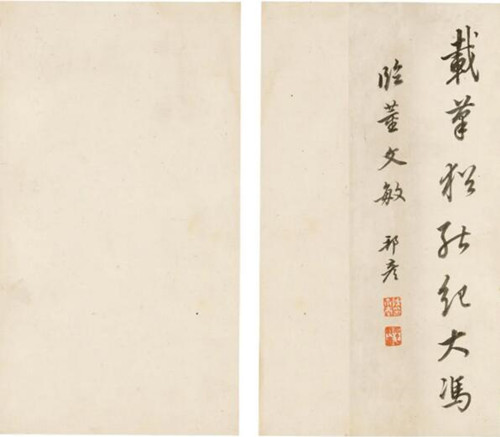 載筆猶能紀大馮
臨董文敏 邦彥